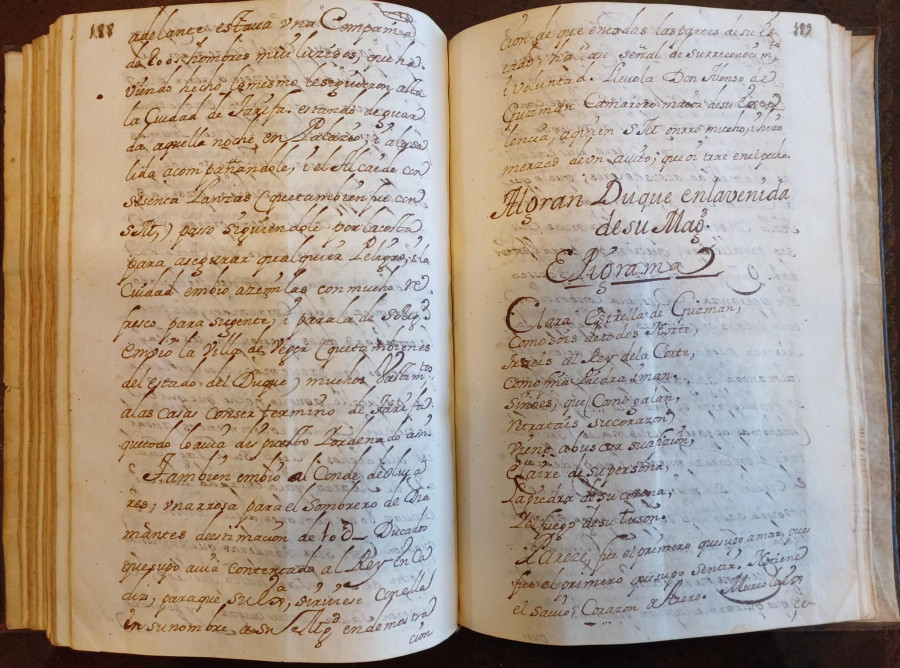 188
adelante estava vna Compañia
de 200 hombres mui luzidos, que ha
viendo hecho lo mesmo le siguieron asta
la Ciudad de Tarifa. estando de guar
da aquella noche en Palacio; i a la sa
lida acompañandole, i el Alcaide con
sesenta Lanzas (que tambien fue con
S M,) paso siguiendole por la costa
para asegurar qualquier Peligro, i la
Ciudad embio azemilas con mucho re
fresco para su gente, i para la de su Magd
embio la Villa de Veger (que tambien es
del estado del Duque) muchos bastimtos
a las casas con ser termino de Tarifa
que todo lo avia dispuesto i ordenado asi.
Tambien embio al Conde de Oliva
res, vna rosa para el Sombrero de Dia
mantes de estimacion de Ducados
que supo avia contentado al Rey en Ca
diz, para que su sirviese con ella
en su nombre a su Magd en demostra
cion
189
cion de que en todas las partes de su Es
tado, hallase señal de su rrendimto
i voluntad. Llevola Don Alonso de
Guzman Camarero maior de su Exce
lencia, a quien S M onrró mucho, i hizo
merzed de un avito, que oi trae en el pecho.
Al gran Duque en la venida
de su Magd.
Epigrama
Clara Estrella de Guzman,
Como sois de todos Norte,
Traeis al Rey de la Corte,
como fina Piedra iman.
Sino es, que Como galan,
retratais su corazon,
viene a buscar su aficion,
el aire de su persona,
la piedra de su corona,
i el fuego de su tuson.
Pareze, fue el primero que supo amar, pues
fue el primero que supo penar. Que tiene
el savio, Corazon